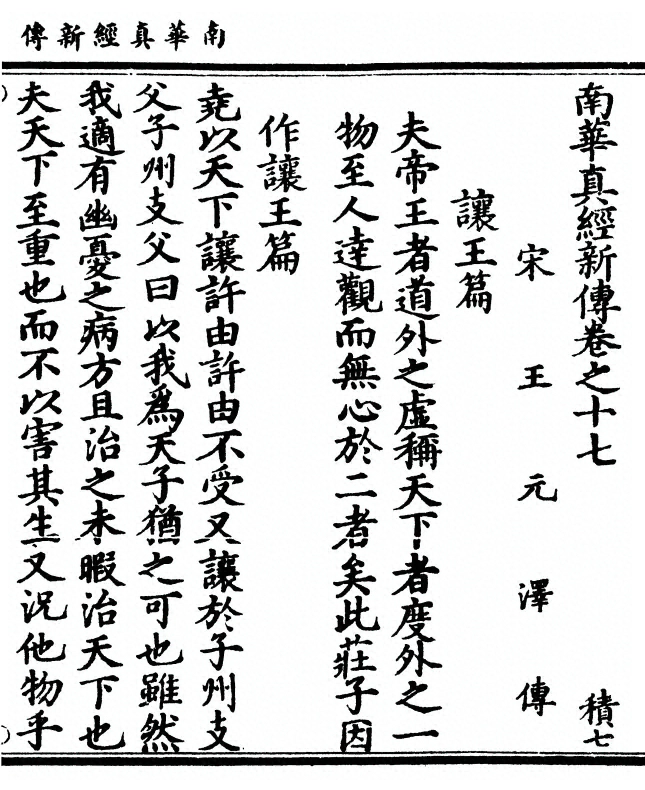 南華真經新傳
南華真經新傳卷之十七 積七
宋王元澤傳
讓王篇
夫帝王者道外之虛稱天下者度外之一
物至人達觀而無心於二者矣此莊子因
作讓王篇
堯以天下讓許由許由不受又讓於子州支
父子州支父曰以我爲天子猶之可也雖然
我適有幽憂之病方且治之未暇治天下也
夫天下至重也而不以害其生又況他物乎